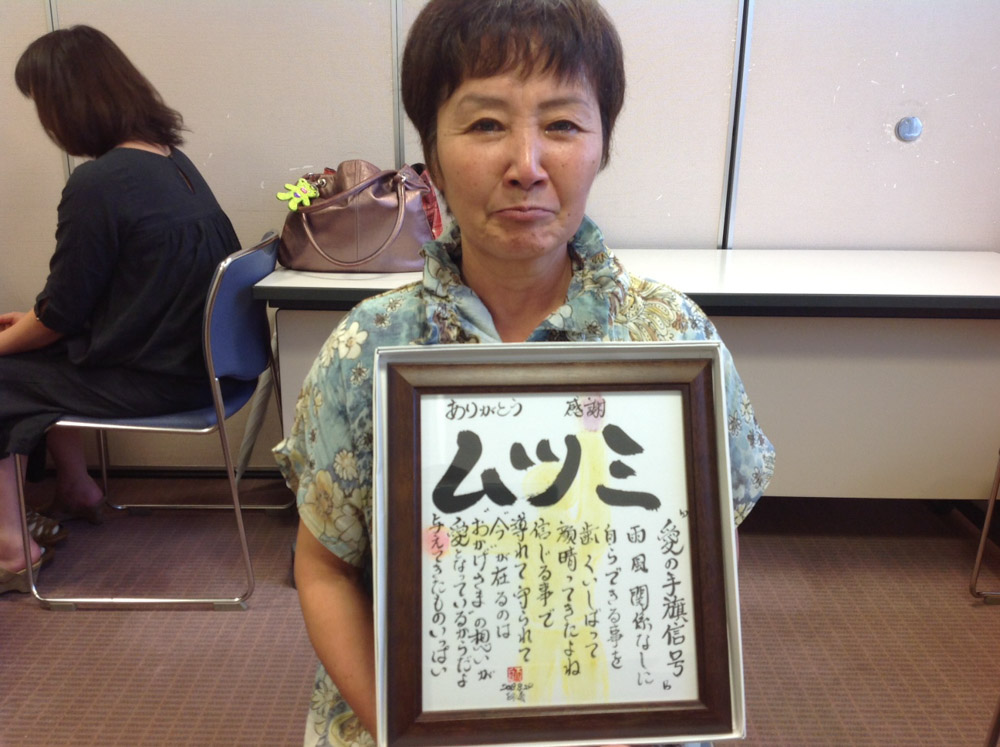 ありがとう 感謝
ムツミ
"愛の手旗信号"
雨風関係なしに
自らできる事を
歯くいしばって
頑晴ってきたよね
信じる事で
導れて守られて
"今"が在るのは
"おかげさま"の想いが
愛となっているからだよ
与えてきたものいっぱい